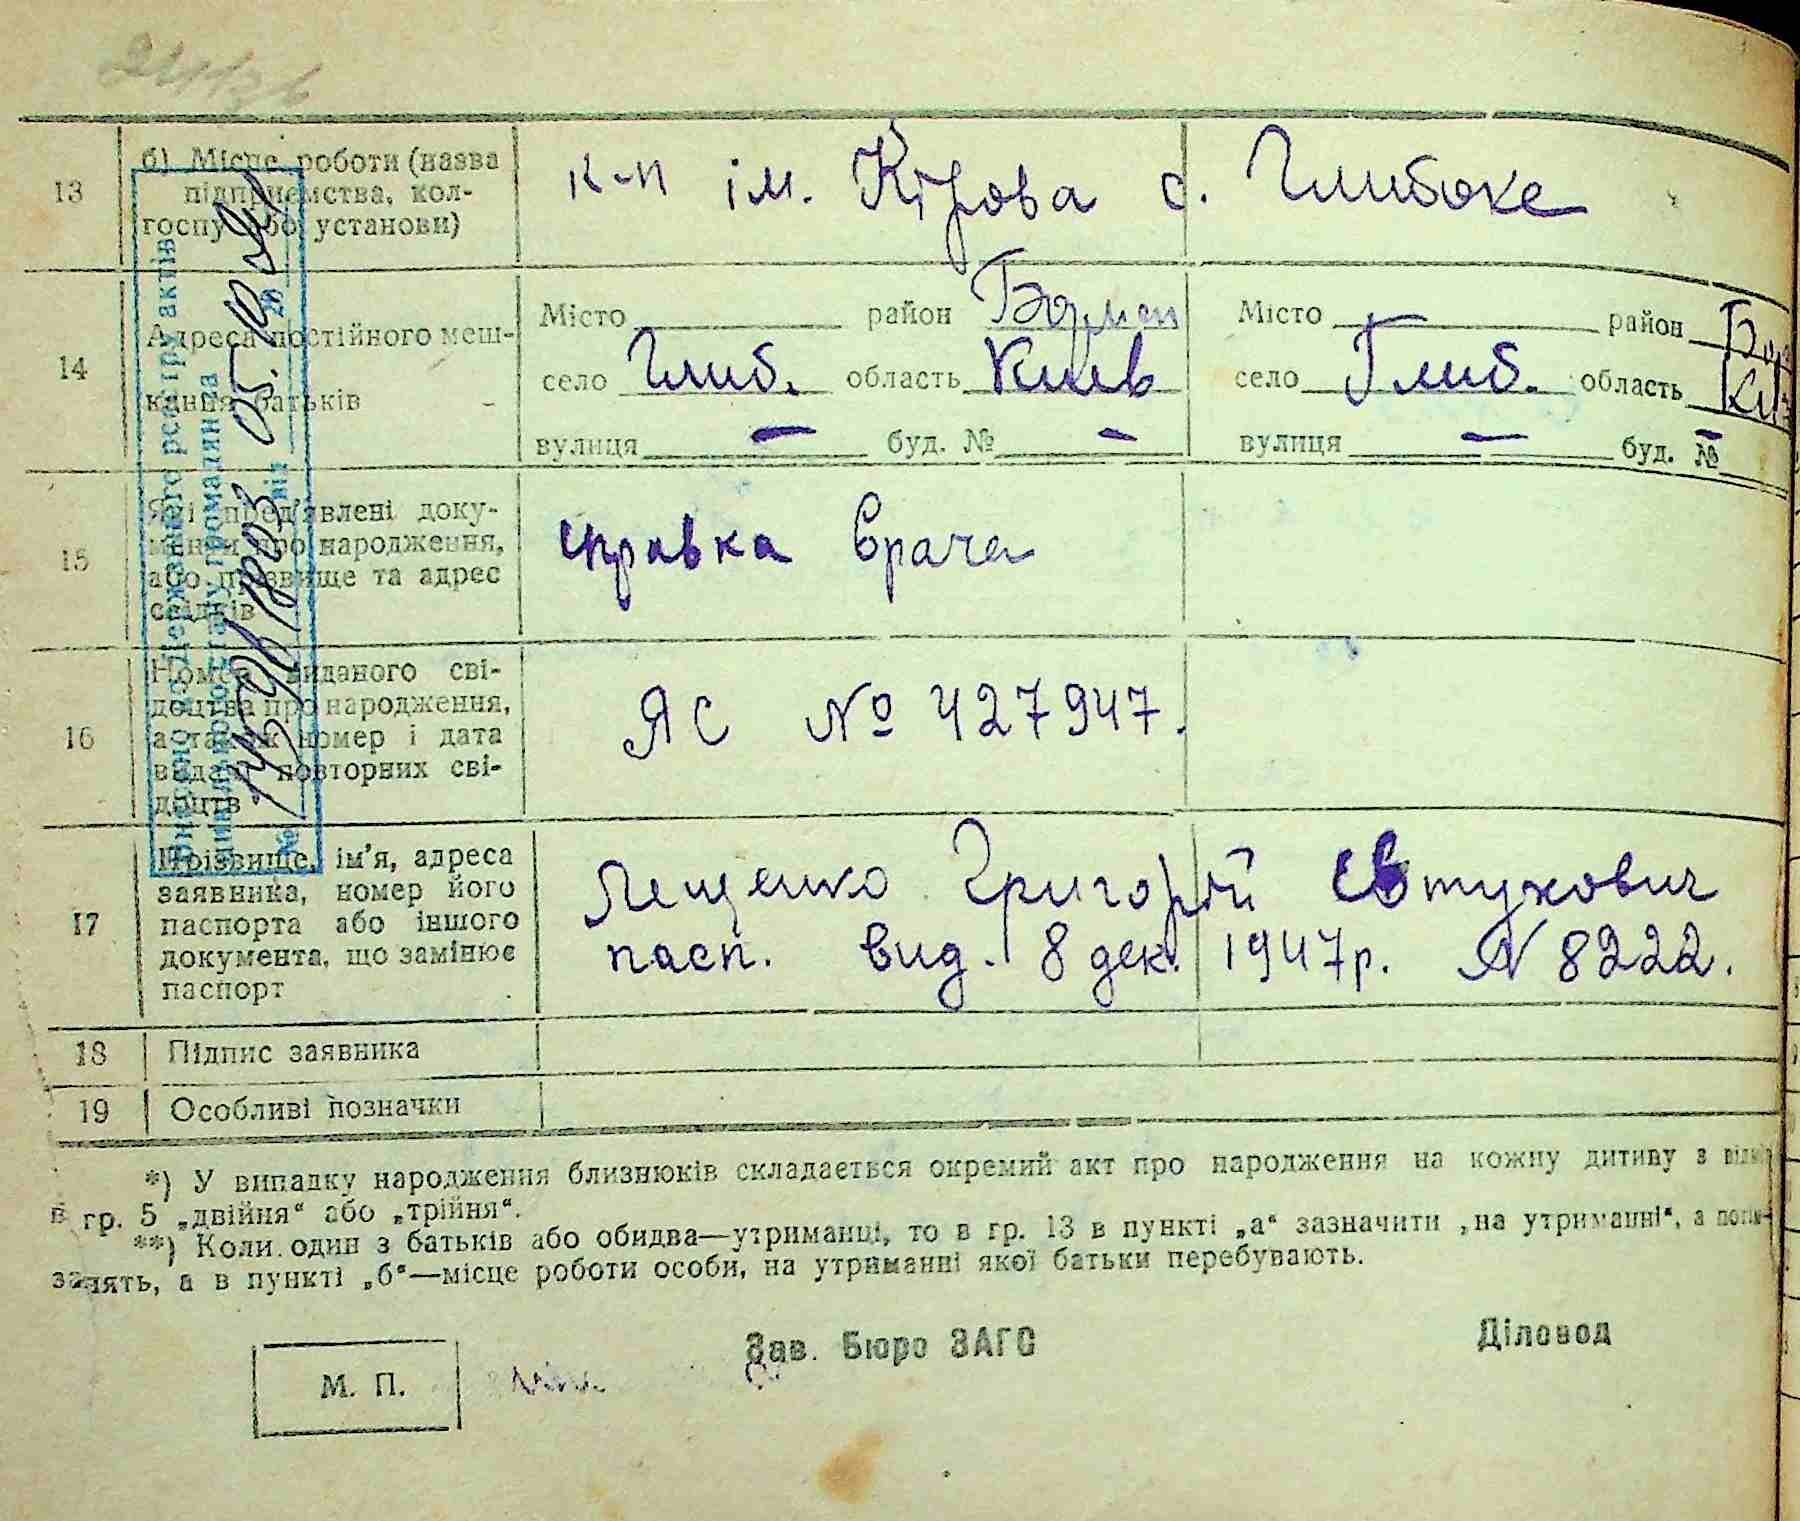 13
б) Місце роботи (назва
підприємства, кол-
госпу або установи)
к-п ім. Кірова с. Глибоке
14
Адреса постійного меш-
кання батьків
Місто район Борисп
село Глиб. область Київ
вулиця — буд. № —
Місто район Бор
село Глиб. область Ки
вулиця — буд. № —
15
Які пред'явлені доку-
менти про народження,
або прізвище та адрес
свідків
справка врача
16
Номер виданого сві-
доцтва про народження,
а також номер і дата
видачі повторних сві-
доцтв
ЯС № 427947.
17
Прізвище, ім'я, адреса
заявника, номер його
паспорта або іншого
документа, що замінює
паспорт
Лещенко Григорій Євтухович
пасп. вид. 8 дек. 1947р. N 8222.
18 Підпис заявника
19 Особливі позначки
*) У випадку народження близнюків складається окремий акт про народження на кожну дитину з
в гр. 5 „двійня“ або „трійня“.
**) Коли один з батьків або обидва—утриманці, то в гр. 13 в пункті „а“ зазначити „на утриманні“, а
занять, а в пункті „б“—місце роботи особи, на утриманні якої батьки перебувають.
Зав. Бюро ЗАГС
Діловод
М. П.
до Державного реєстру актів
цивільного стану громадян за
№ від 05. 10 20